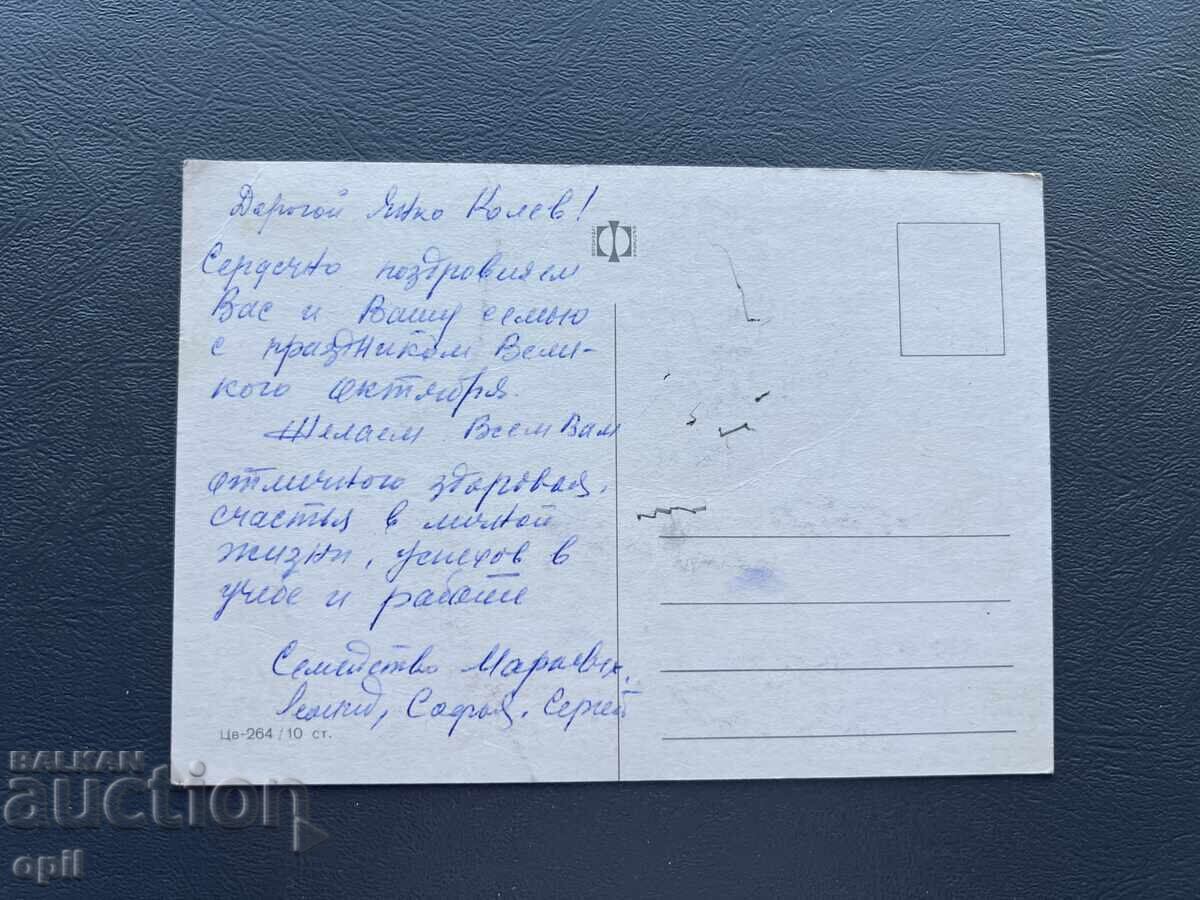 Дорогой Янко Колев!
Сердечно поздравляем
Вас и Вашу семью
с праздником Вели-
кого Октября.
Желаем Всем Вам
отличного здоровья,
счастья в личной
жизни, успехов в
учебе и работе
Семейство
Леонид, София, Сергей
Цв-264/10 ст.
BALKAN
auction
opil